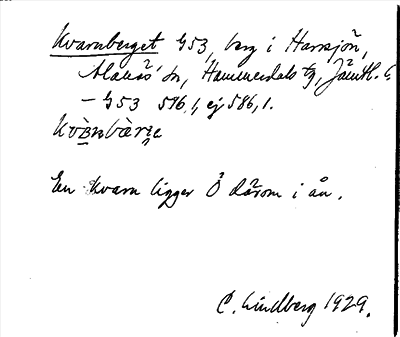 Kvarnberget G53, berg i Harrsjön,
Alanäs sn, Hammerdals tg, Jämtl. l
– G53 586,1, ej 586,1.
En kvarn ligger Ö därom i ån.
C. Lindberg 1929.